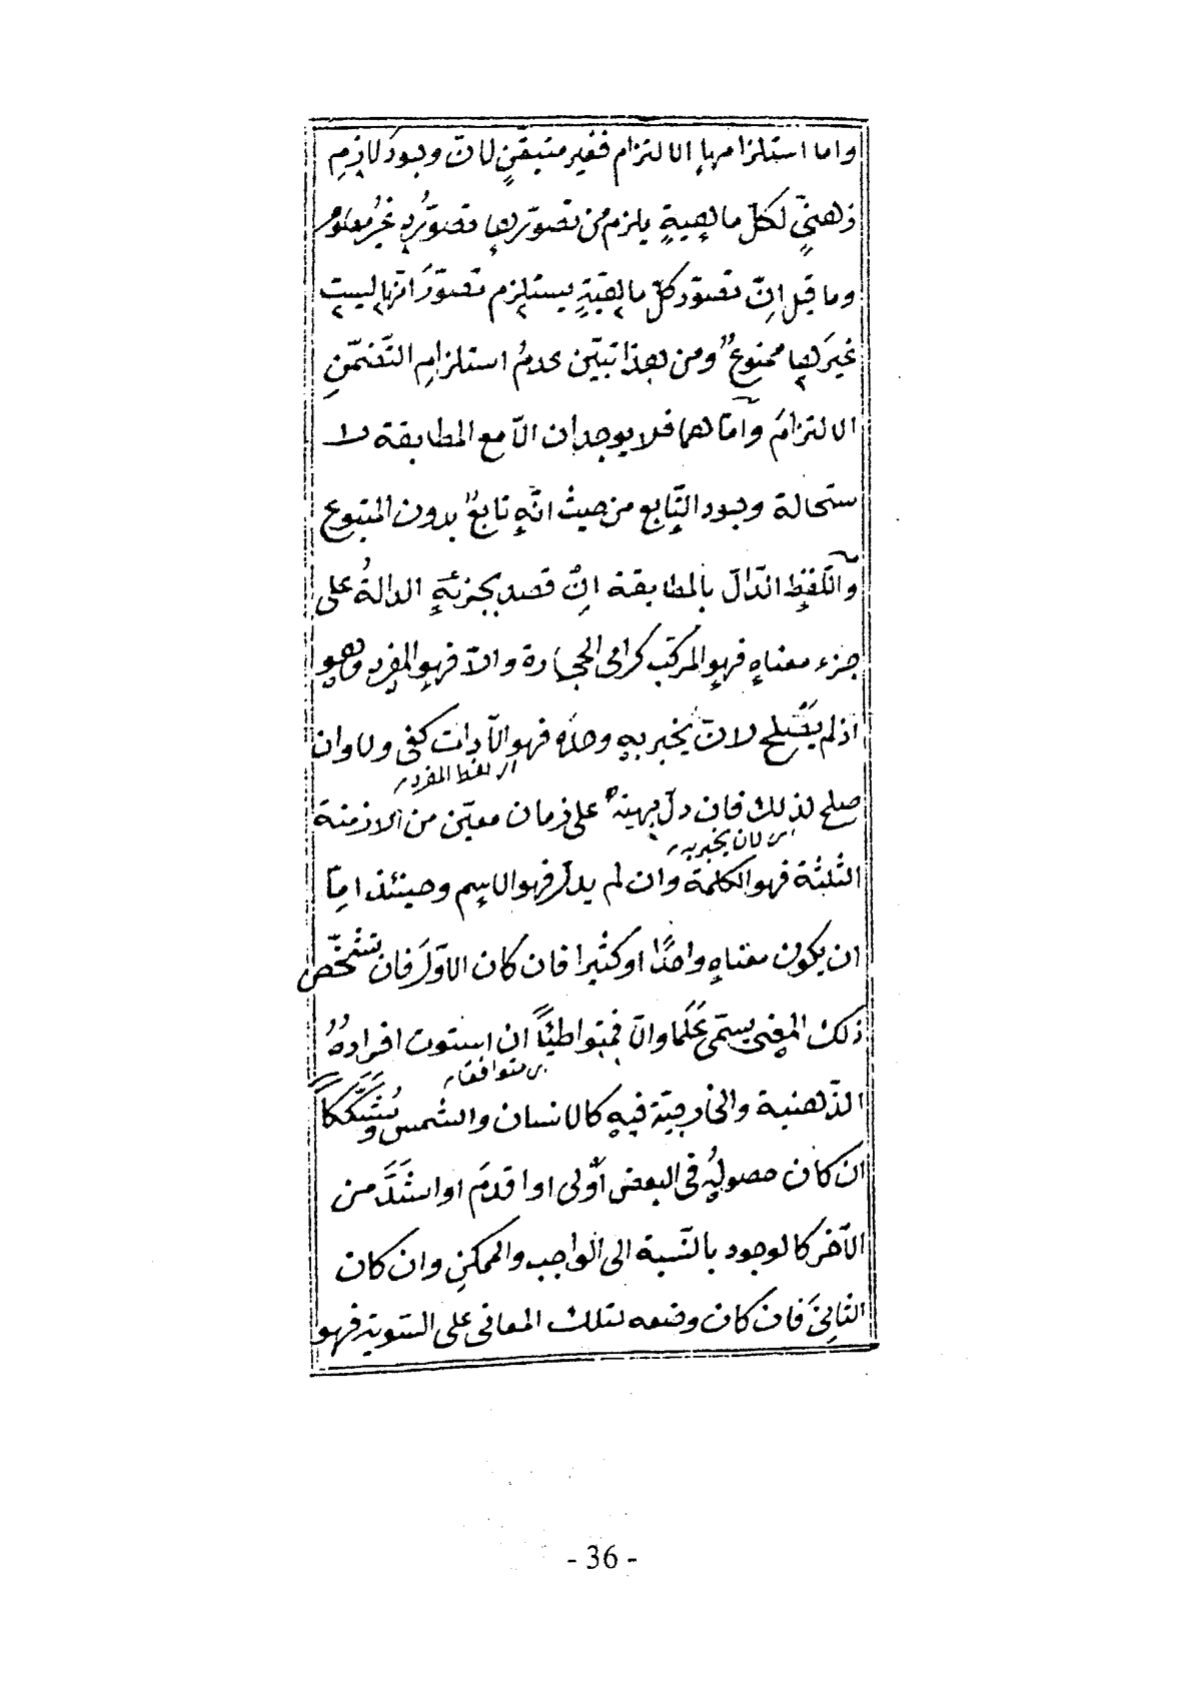 واما استلزامها الالتزام فغير متيقنٍ لانّ وجودَ لازمٍ
ذهنيٍّ لكلّ ماهيةٍ يلزم من تصوّرها تصوّرُه غيرُ معلوم
وما قيل انّ تصوّر كلّ ماهيّةٍ يستلزم تصوّرَ انّها ليست
غيرَها ممنوعٌ ومن هذا تبيّن عدمُ استلزامِ التّضمّنِ
الالتزامَ وآمّا هما فلا يوجدان الاّ مع المطابقة لا
ستحالة وجود التّابع من حيثُ انّه تابعٌ بدون المتبوع
وآللّفظ الدّالّ بالمطابقة انْ قصد بجزئه الدالةُ على
جزء معناه فهو المركّب كرامى الحجارة والاّ فهو المفرد وهو
اذ لم يَصْلح لانّ يُخبر به وحدَه فهو الآدات كفى ولا وان
اى لفظ المفرد
صلح لذلك فان دلّ بهيئة على زمان معيّن من الازمنة
اى لان يخبر به
الثلثة فهو الكلمة وان لم يدلّ فهو الاسم وحينئذ امّا
ان يكون معناه واحدًا او كثيرا فان كان الاوّلَ فان تشخّص
ذلك المعنى يسمّى عَلَما والاّ فمتواطئًا ان استوت افرادُهُ
اى متوافقا
الذّهنية والخارجيّة فيه كالانسان والشمس ومُشَكَّكاً
ان كان حصولُه فى البعض أوْلى او اقدمَ او اشدَّ من
الآخر كالوجود بالنّسبة الى الواجب والممكنِ وان كان
الثانىَ فان كان وضعه لتلك المعانى على السّوية فهو
- 36 -